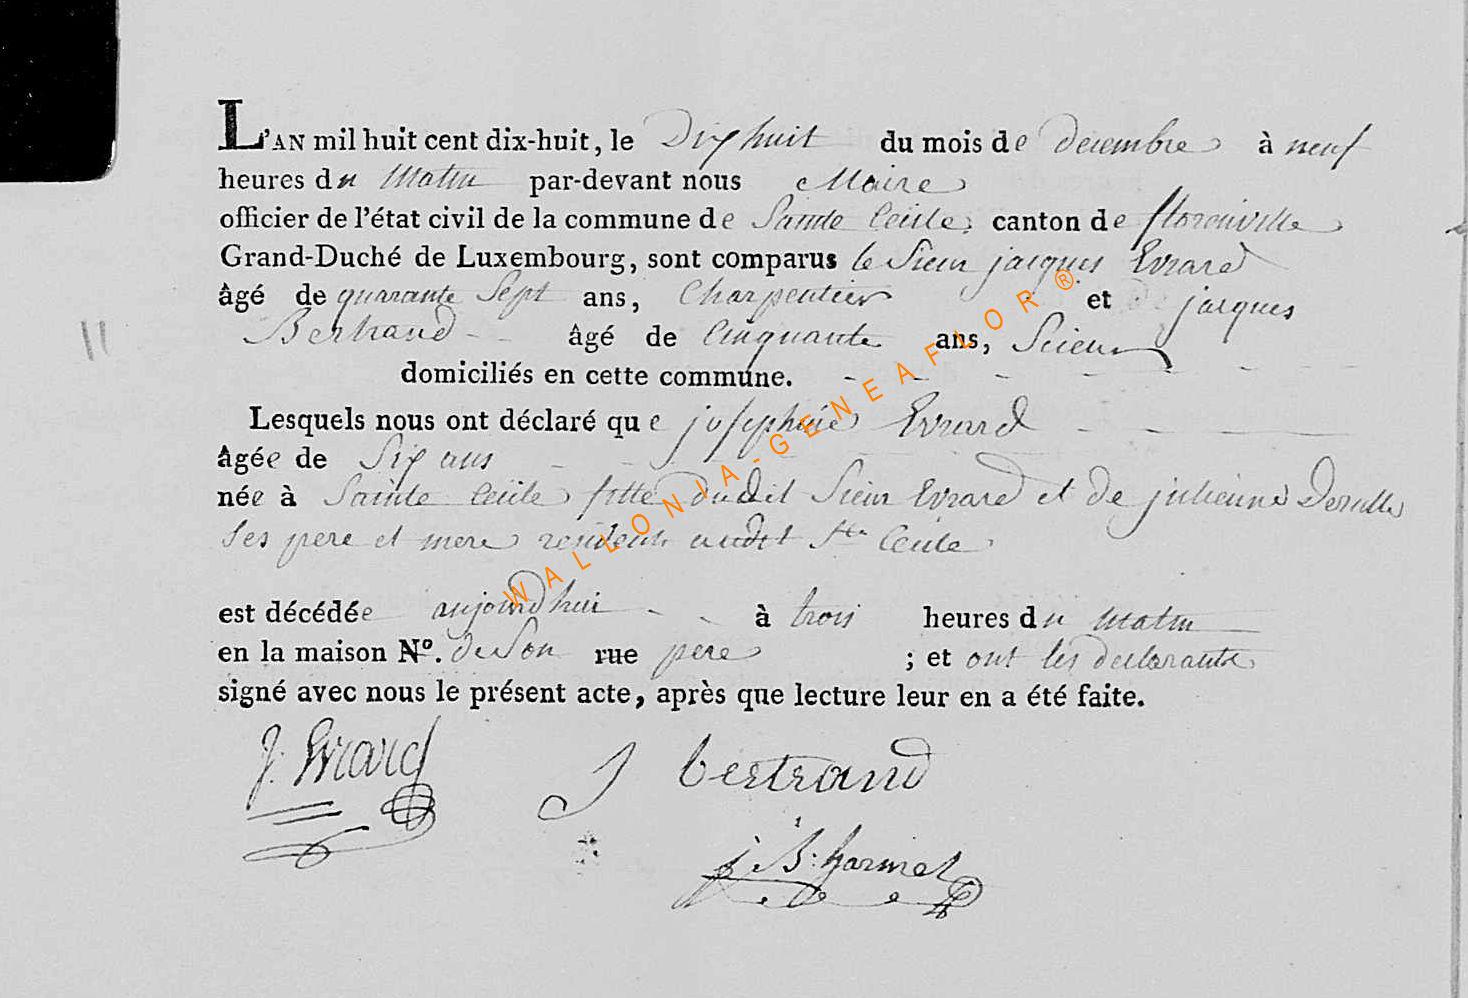 L'AN mil huit cent dix-huit, le Dix huit du mois de decembre à neuf
heures du Matin par-devant nous Maire
officier de l'état civil de la commune de Sainte Cecile canton de florenville
Grand-Duché de Luxembourg, sont comparus le Sieur jacques Evrard
âgé de quarante Sept ans, Charpentier et jacques
Bertrand âgé de Cinquante ans, Scieur
domiciliés en cette commune.
Lesquels nous ont déclaré que josephine Evrard
âgée de Six ans
née à Sainte Cecile fille dudit Sieur Evrard et de julienne
Ses pere et mere residents audit Ste Cecile
est décédée aujourd'hui à trois heures du Matin
en la maison No. de Son rue pere ; et ont les declarants
signé avec nous le présent acte, après que lecture leur en a été faite.
J. Evrard J bertrand
j B: harmel
11
WALLONIA-GENEAFLOR ®